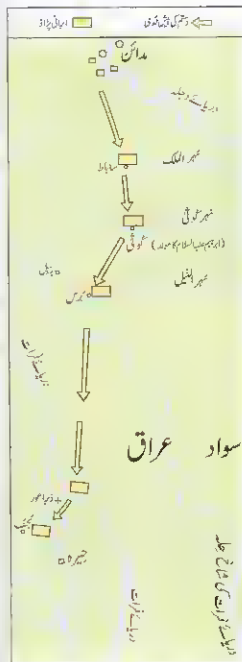 رستم کی پیش قدمی
ایرانی پڑاؤ
مدائن
دریائے دجلہ
نہر الملک
ساباط
نہر کوثیٰ
کوثیٰ (ابراہیم علیہ السلام کا مولد)
بابل
نہر النیل
برس
دریائے فرات
سواد عراق
نجف
حیرہ
دریائے فرات
دریائے فرات کی شاخ حلہ